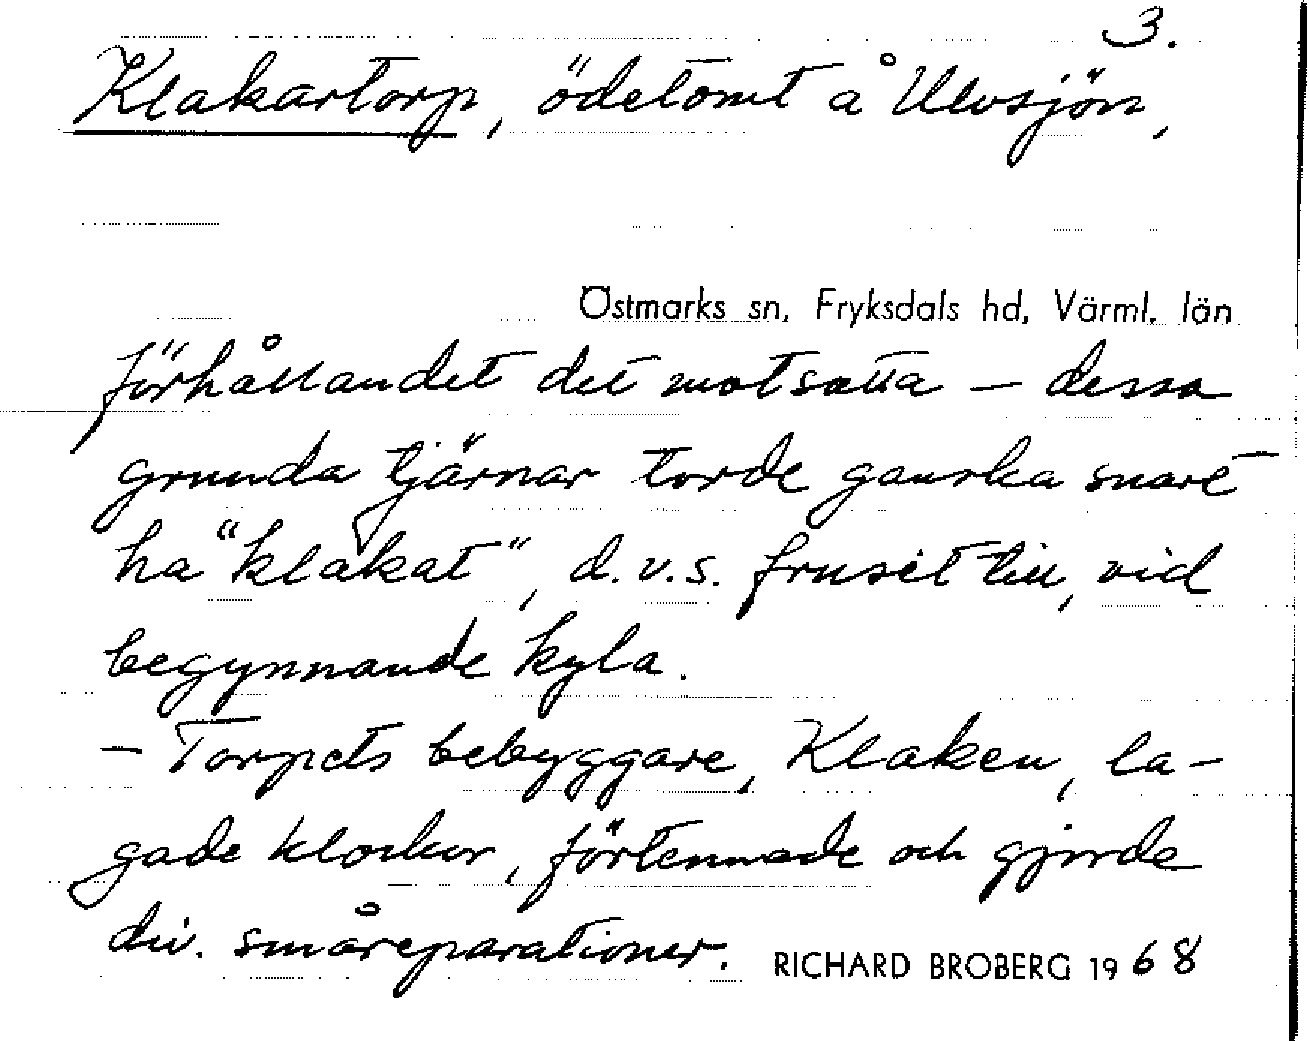 3.
Klakartorp, ödetomt å Ulvsjön,
Östmarks sn, Fryksdals hd, Värml. län
förhållandet det motsatta – dessa
grunda tjärnar torde ganska snart
ha "klakat", d.v.s. frusit till, vid
begynnande kyla.
– Torpets bebyggare, Klaken, la-
gade klockor, förtennade och gjorde
div. småreparationer.
RICHARD BROBERG 1968